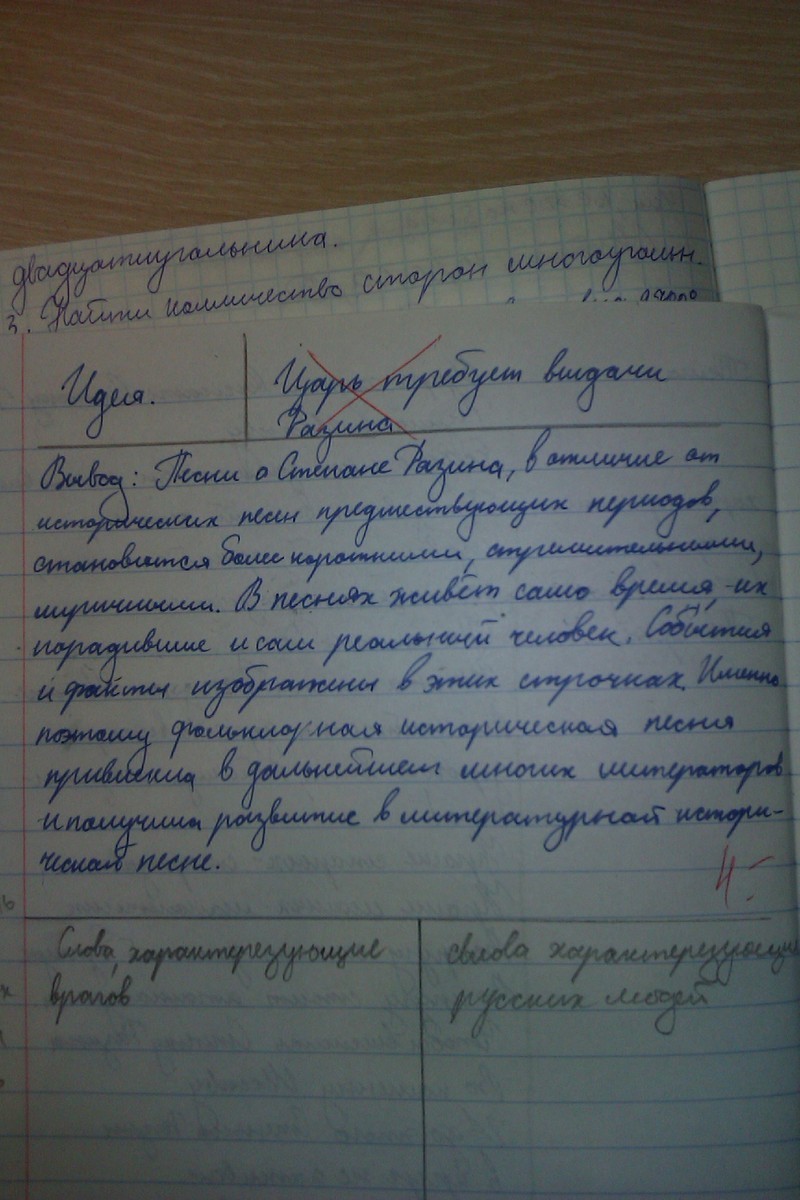 двадцатиугольника.
3. Найти количество сторон многоугольн.
Идея.
Царь требует выдачи
Разина
Вывод: Песни о Степане Разина, в отличие от
исторических песен предшествующих периодов,
становятся более короткими, стремительными,
лиричными. В песнях живёт само время, их
породившие и сам реальный человек. События
и факты изображены в этих строчках. Именно
поэтому фольклорная историческая песня
привлекла в дальнейшем многих литераторов
и получила развитие в литературной истори-
ческой песне.
4-
Слова, характерезующие
врагов
слова характерезующие
русских людей